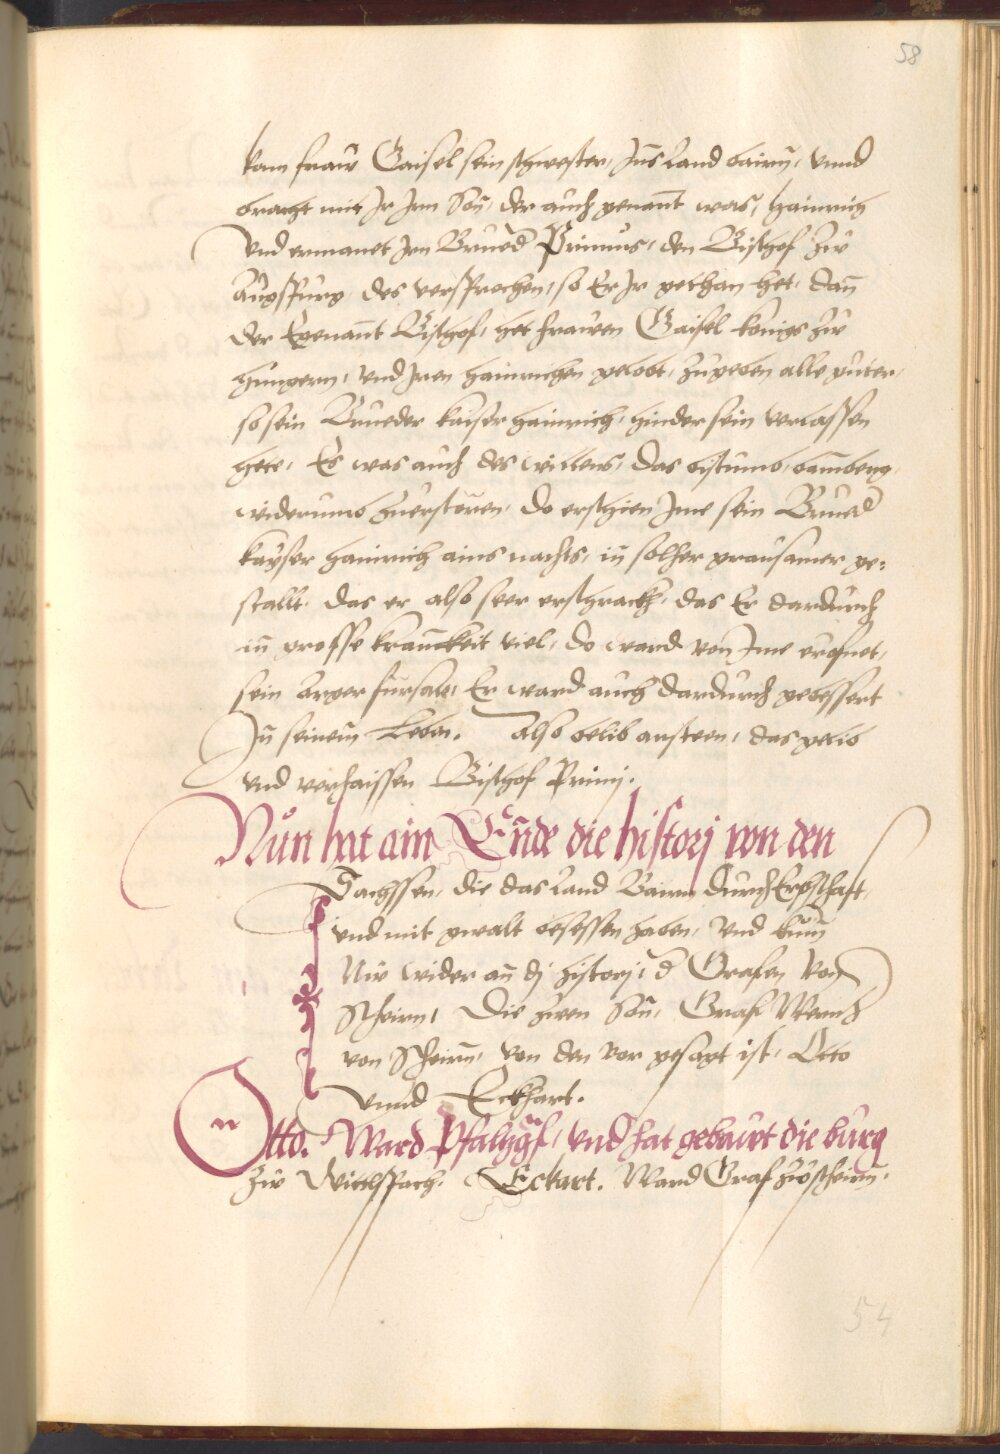 58
kam fraw Gaisel sein schwester, Jns Land bairn, vnnd
bracht mit Jr Jrn Son, der auch genant was, hainrich
Vnd ermanet Jrn Brueder Prinnus, den Bischof zw
Augspurg, des versprechen, so Er Jr gethan het, dan
der Egenant Bischof, het frawen Gaisel königs zw
hungern, vnd Jren hainrichen gelobt, zugeben alle guter,
so sein Brueder kaiser hainrich, hinder sein verlassen
hete, Er was auch des willens, das bistumb, bamberg,
widerumb zuerstoren, do erschien Jme sein Brued
kayser hainrich ains nachts, in solcher grausamer ge:
stallt, das er also seer erschrackh, das Er dardurch
in grosse kranckeit viel, do ward von Jme erofnet,
sein arger fürsatz, Er ward auch dardurch gebessert
Jn seinem Leben. Also belib ansteen, das gelib
vnd verhaissen Bischof Prinnj.
Nun hat ain Ende die historj von den
Sachssen, die das Land Bairn durch Erbschaft,
vnd mit gwalt besessen haben, vnd kum
Nw wider an dj historj, d Grafen von
Scheirn, Die zwen Son, Graf Wernh
von Scheirn, von den vor gesagt ist, Otto
vnnd Eckhart.
Otto. Ward Pfalzgf, vnd hat gebawt die burg
zw Wittlspach, Eckart. Ward Graf zw scheirn.
54